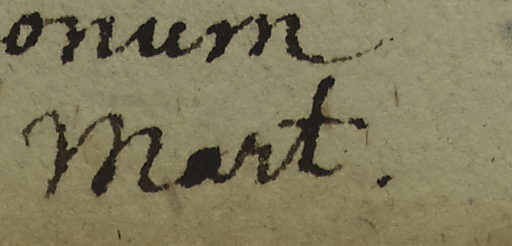 onum
Mart.